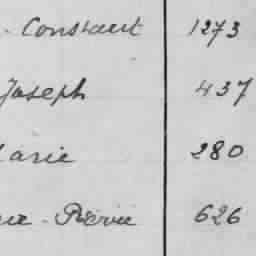 Constant 1273
Joseph 437
Marie 280
Pierre 626